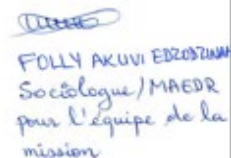 FOLLY AKUVI
Sociologue/MAEDR
pour l'équipe de la
mission